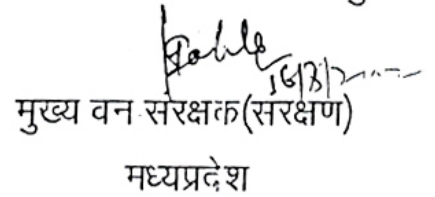 मुख्य वन संरक्षक(सरक्षण)
मध्यप्रदेश